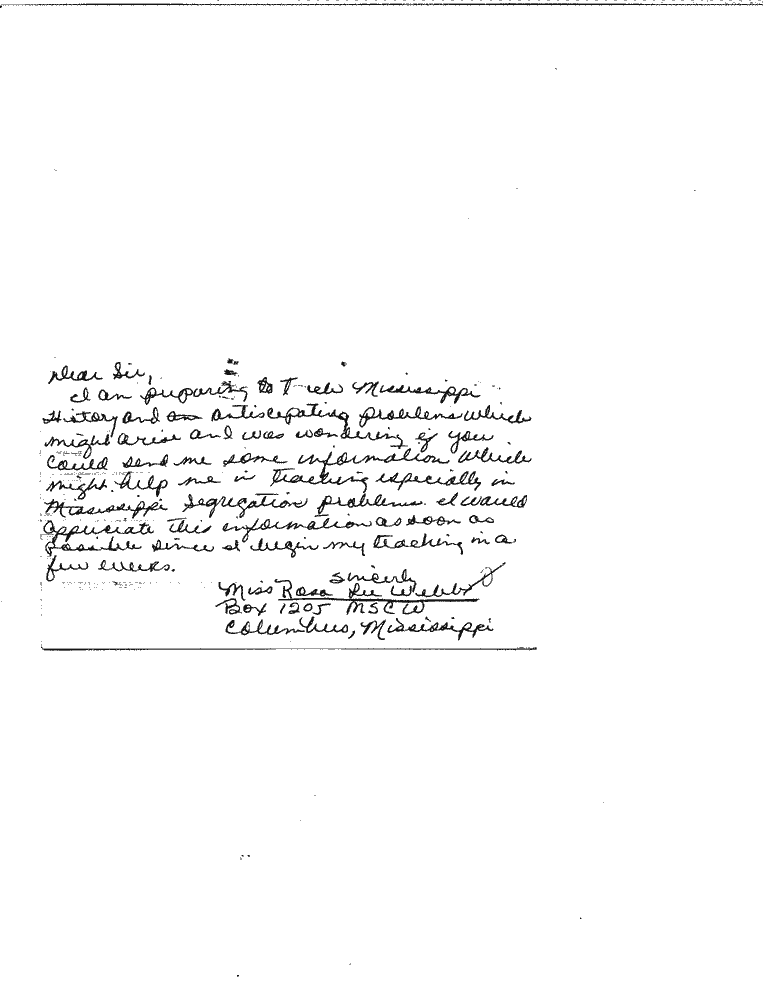 Dear Sir,
I am preparing to Teach Mississippi
History and am antiscepating problems which
might arise and was wondering if you
could send me some information which
might help me in teaching especially in
Mississippi Segregation problems. I would
appreciate this information as soon as
possible since I begin my teaching in a
few weeks.
Sincerly
Miss Rosa Lee Webb
Box 1205 MSCW
Columbus, Mississippi